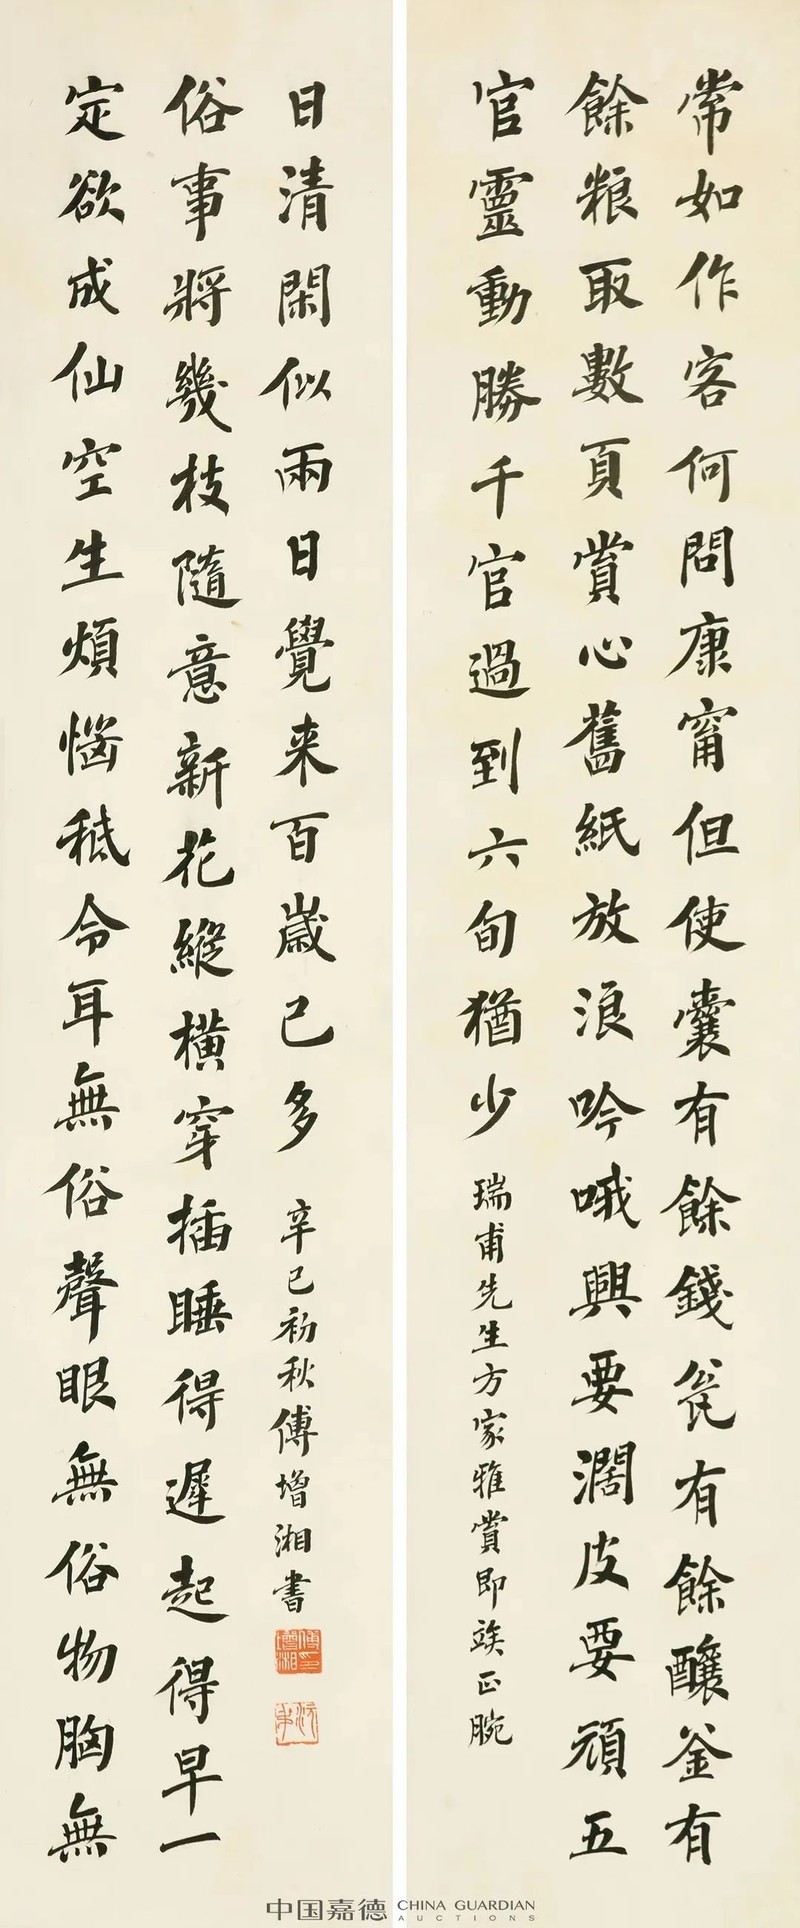 常如作客何問康甯但使囊有餘錢瓮有餘釀釜有
餘粮取數頁賞心舊紙放浪吟哦興要濶皮要頑五
官靈動勝千官過到六旬猶少
瑞甫先生方家雅賞即竢正腕
定欲成仙空生煩惱秪令耳無俗聲眼無俗物胸無
俗事將幾枝隨意新花縱橫穿插睡得遲起得早一
日清閑似兩日覺来百歲已多
辛巳初秋傅增湘書
傅印增湘
沅叔
中国嘉德 CHINA GUARDIAN
AUCTIONS